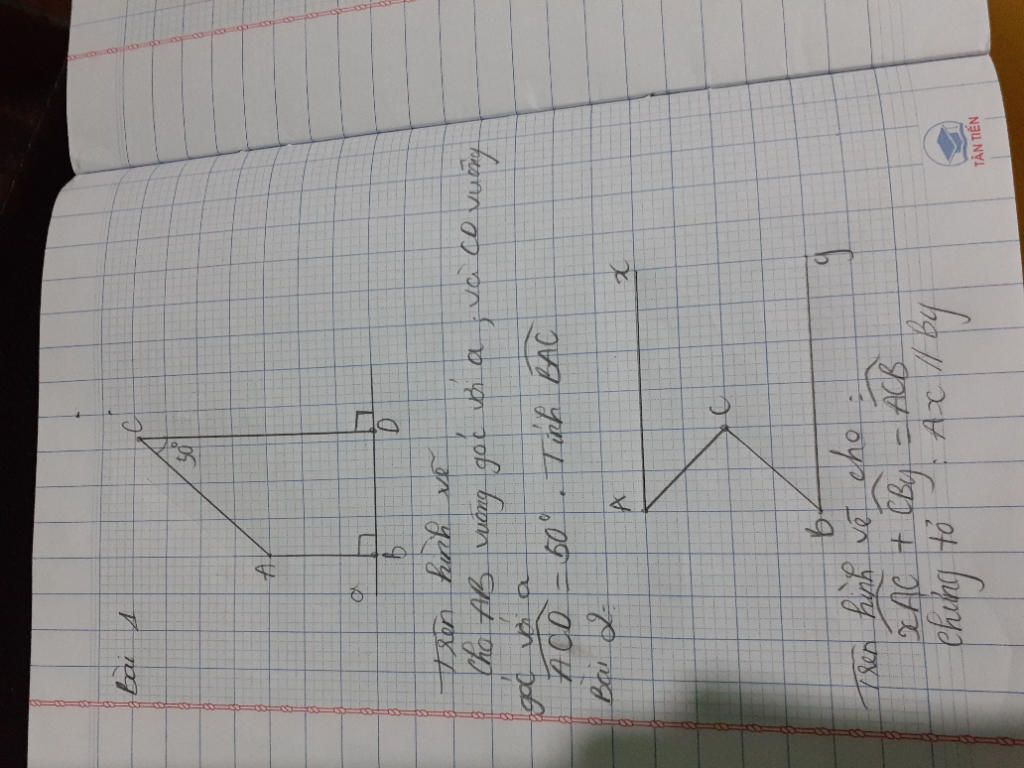 Bài 1
C
50°
A
a
B
D
Trên hình vẽ
Cho AB vuông góc với a ; và CD vuông
góc với a
ACD = 50° . Tính BAC
Bài 2:
A
x
C
b
y
Trên hình vẽ cho :
xAC + CBy = ACB
Chứng tỏ : Ax // By
TÂN TIẾN